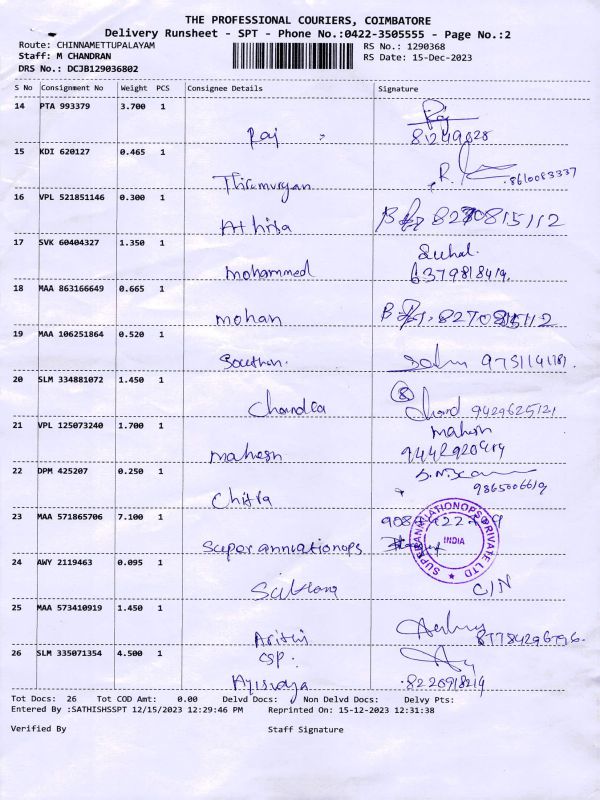 THE PROFESSIONAL COURIERS, COIMBATORE
Delivery Runsheet - SPT - Phone No.:0422-3505555 - Page No.:2
Route: CHINNAMETTUPALAYAM RS No.: 1290368
Staff: M CHANDRAN RS Date: 15-Dec-2023
DRS No.: DCJB129036802
S No Consignment No Weight PCS Consignee Details Signature
14 PTA 993379 3.700 1
Raj
15 KDI 620127 0.465 1
Thirumurgan 8610083337
16 VPL 521851146 0.300 1
Athira 8270815112
17 SVK 60404327 1.350 1 Suhal.
mohammed 6379818419.
18 MAA 863166649 0.665 1
mohan 8270815112
19 MAA 106251864 0.520 1
Gowthan.
20 SLM 334881072 1.450 1 8
Chandra Chand 9429625121
21 VPL 125073240 1.700 1 mahesh
mahesh
22 DPM 425207 0.250 1
Chitra
23 MAA 571865706 7.100 1
superanniationops
SUPERANNUATIONOPS PRIVATE LTD
INDIA
24 AWY 2119463 0.095 1
C/N
25 MAA 573410919 1.450 1
87784296796.
26 SLM 335071354 4.500 1 CSP.
8220918214
Tot Docs: 26 Tot COD Amt: 0.00 Delvd Docs: Non Delvd Docs: Delvy Pts:
Entered By :SATHISHSSPT 12/15/2023 12:29:46 PM Reprinted On: 15-12-2023 12:31:38
Verified By Staff Signature